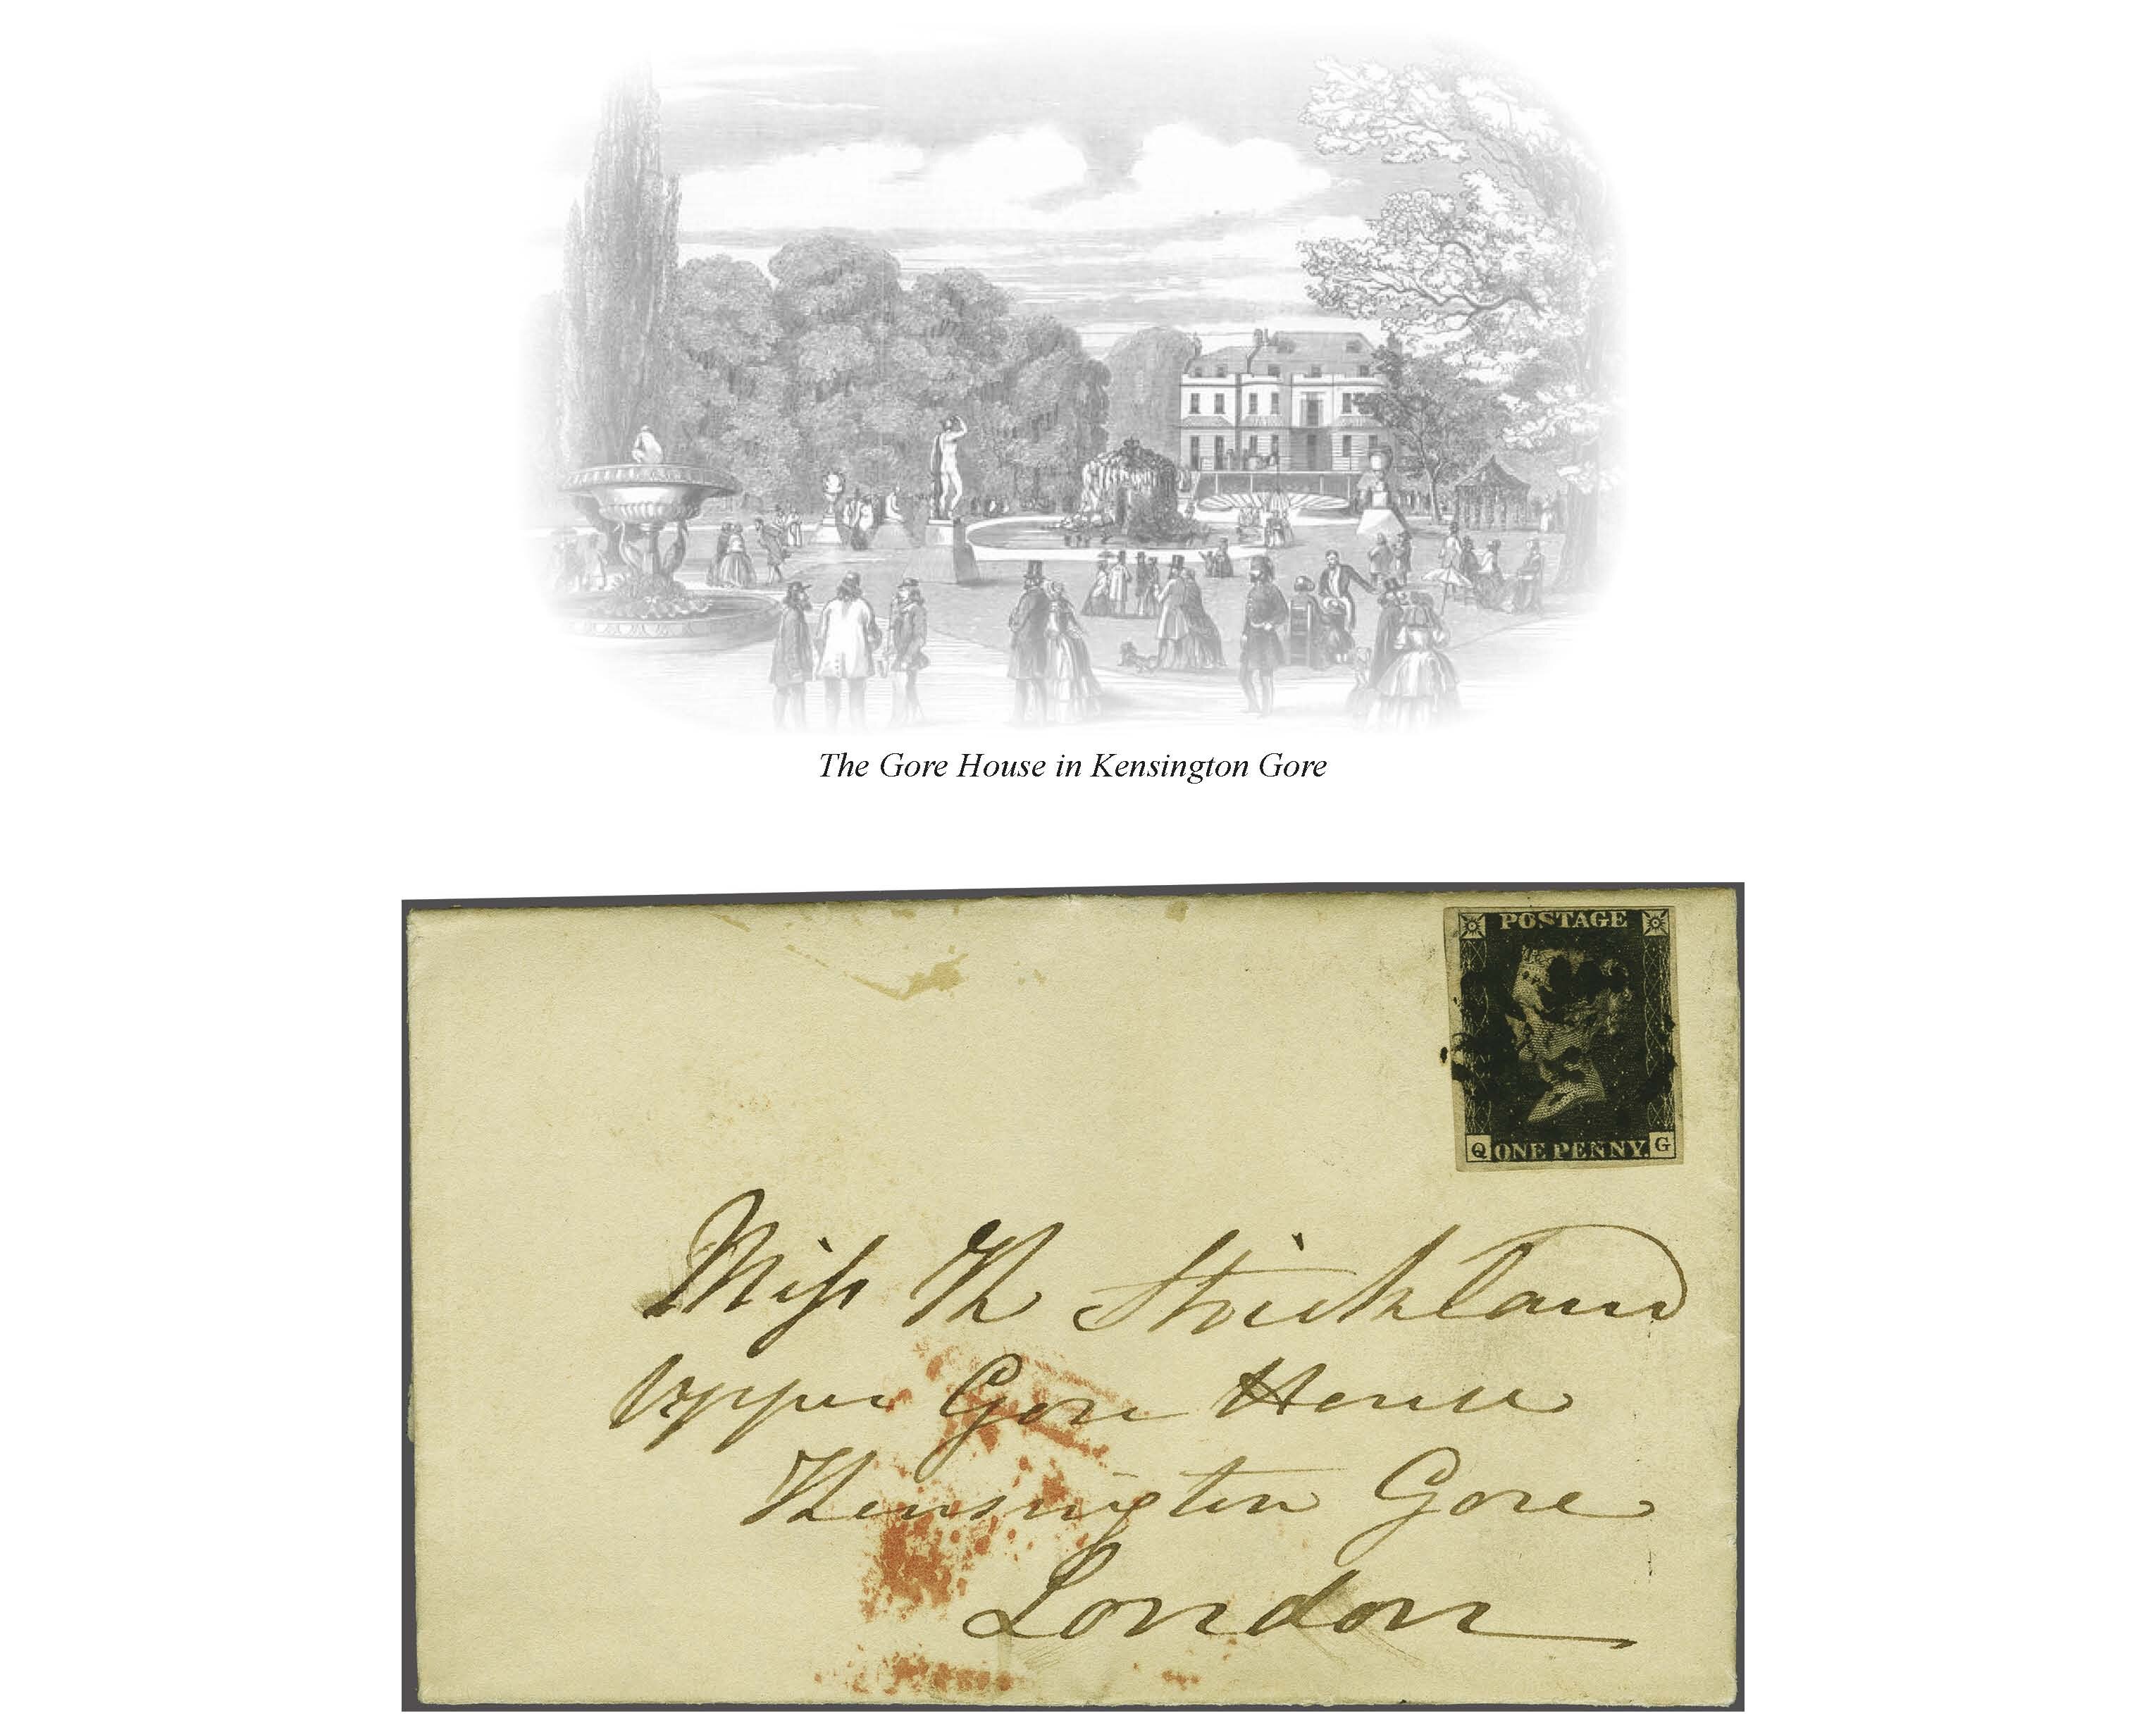 The Gore House in Kensington Gore
POSTAGE
Q ONE PENNY. G
Miss K Strickland
Upper Gore House
Kensington Gore
London